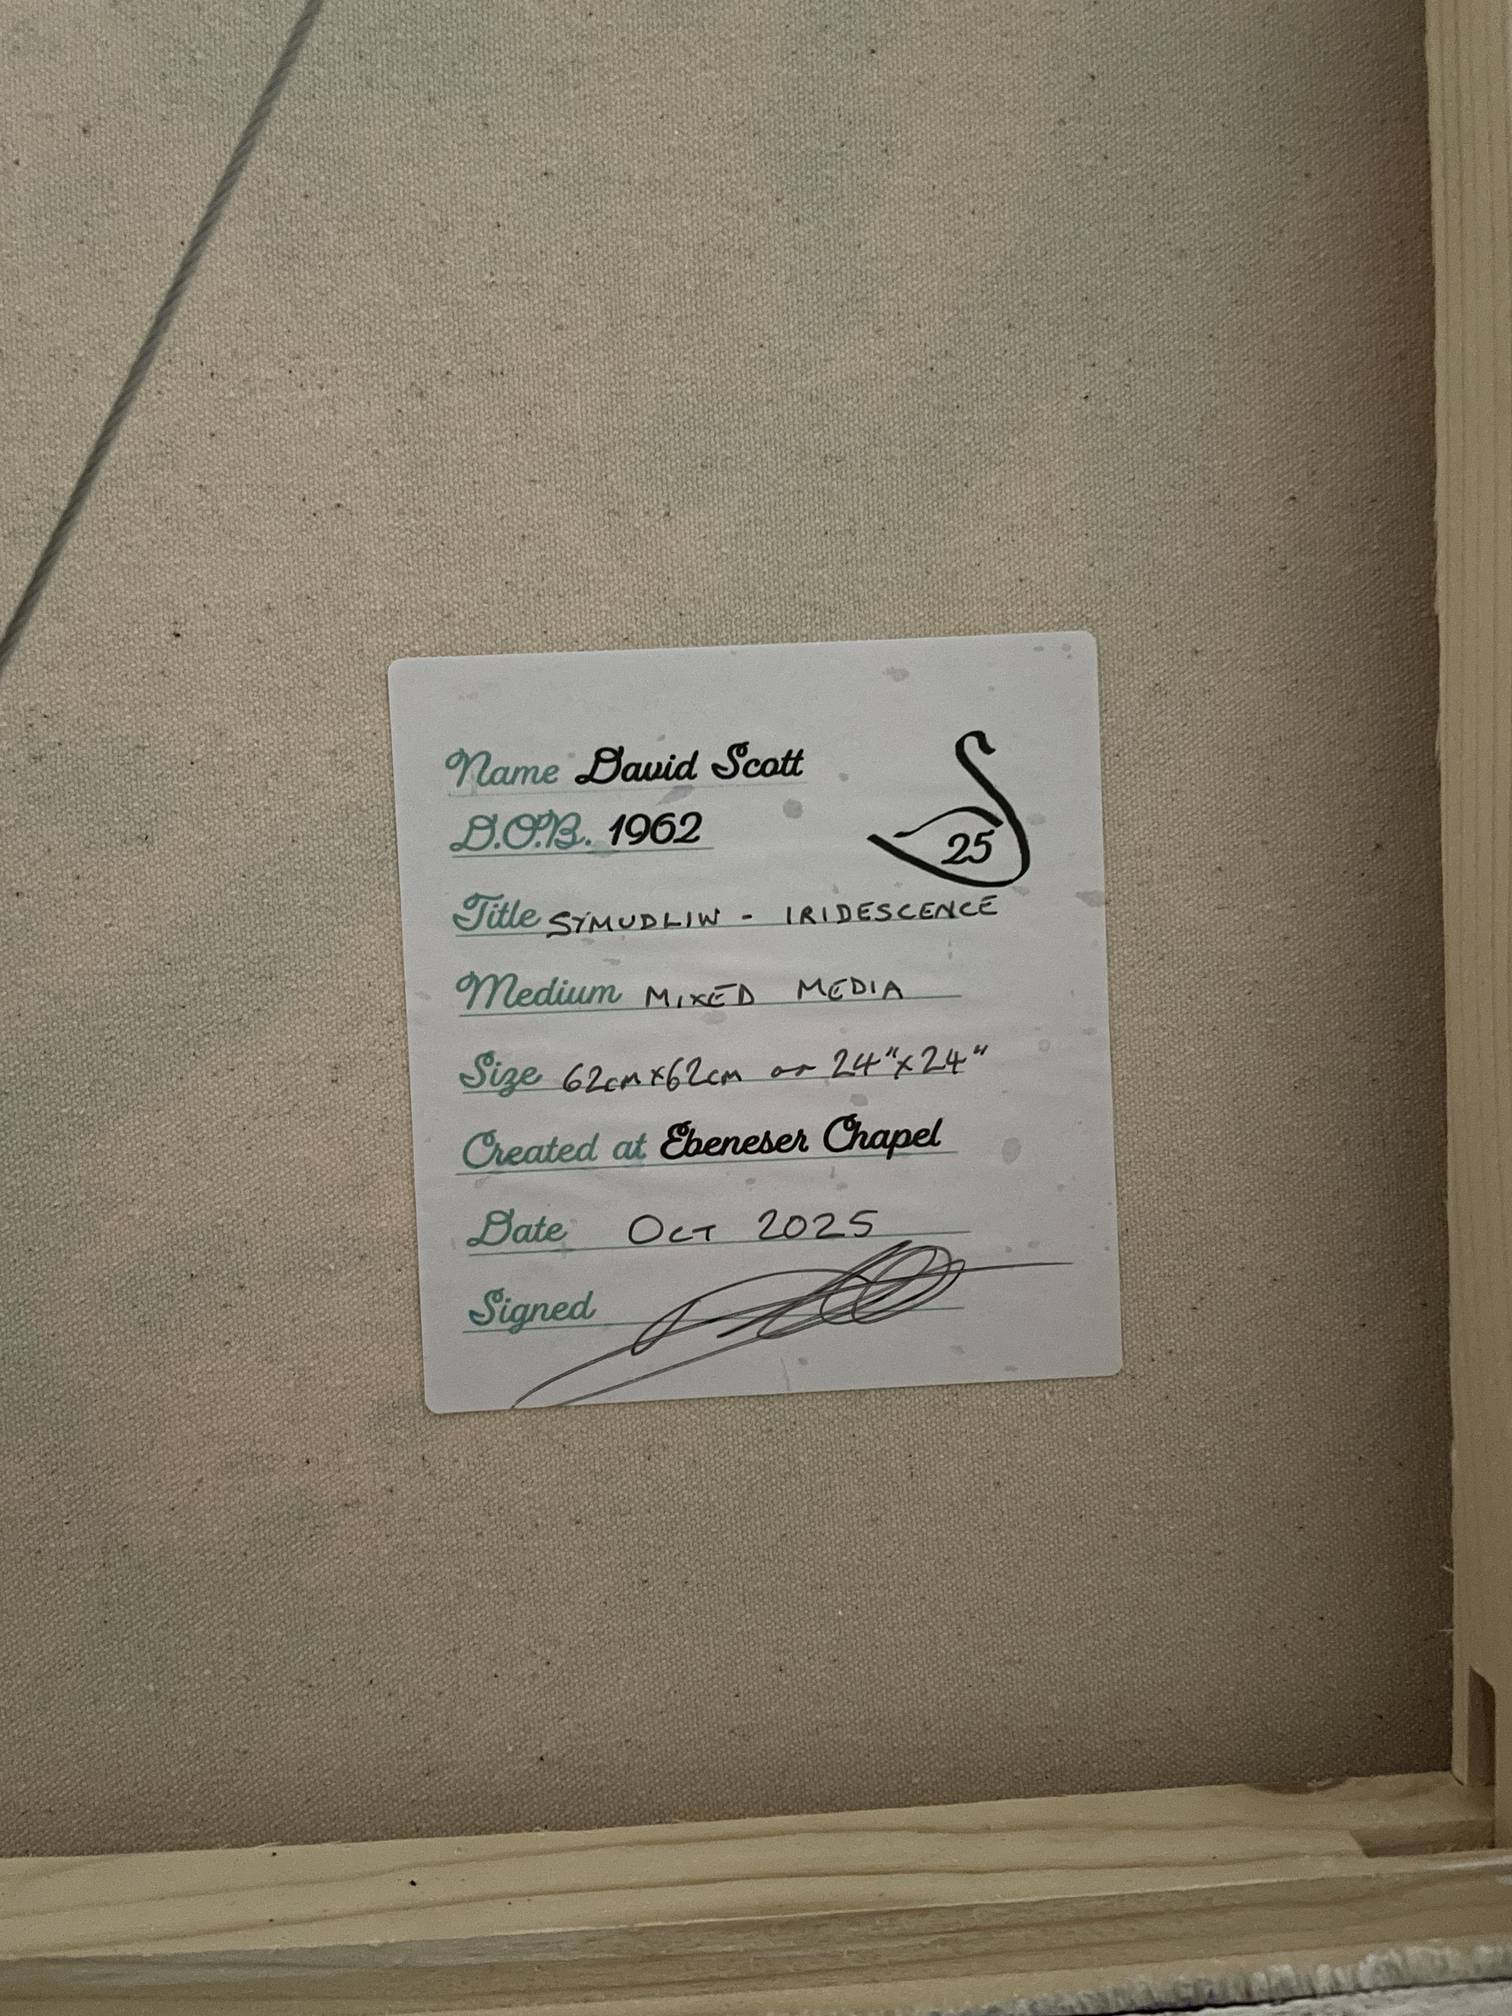 Name David Scott
D.O.B. 1962
25
Title SYMUDLIW - IRIDESCENCE
Medium MIXED MEDIA
Size 62cm x 62cm or 24" x 24"
Created at Ebeneser Chapel
Date OCT 2025
Signed